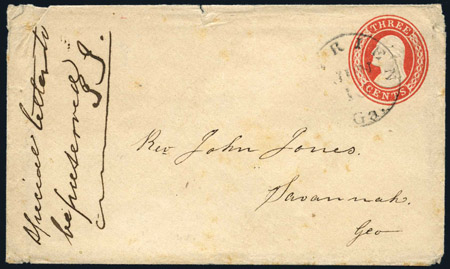 special letter to
be preserved
RIEN
Ga.
THREE
CENTS
Rev. John Jones.
Savannah.
Geo